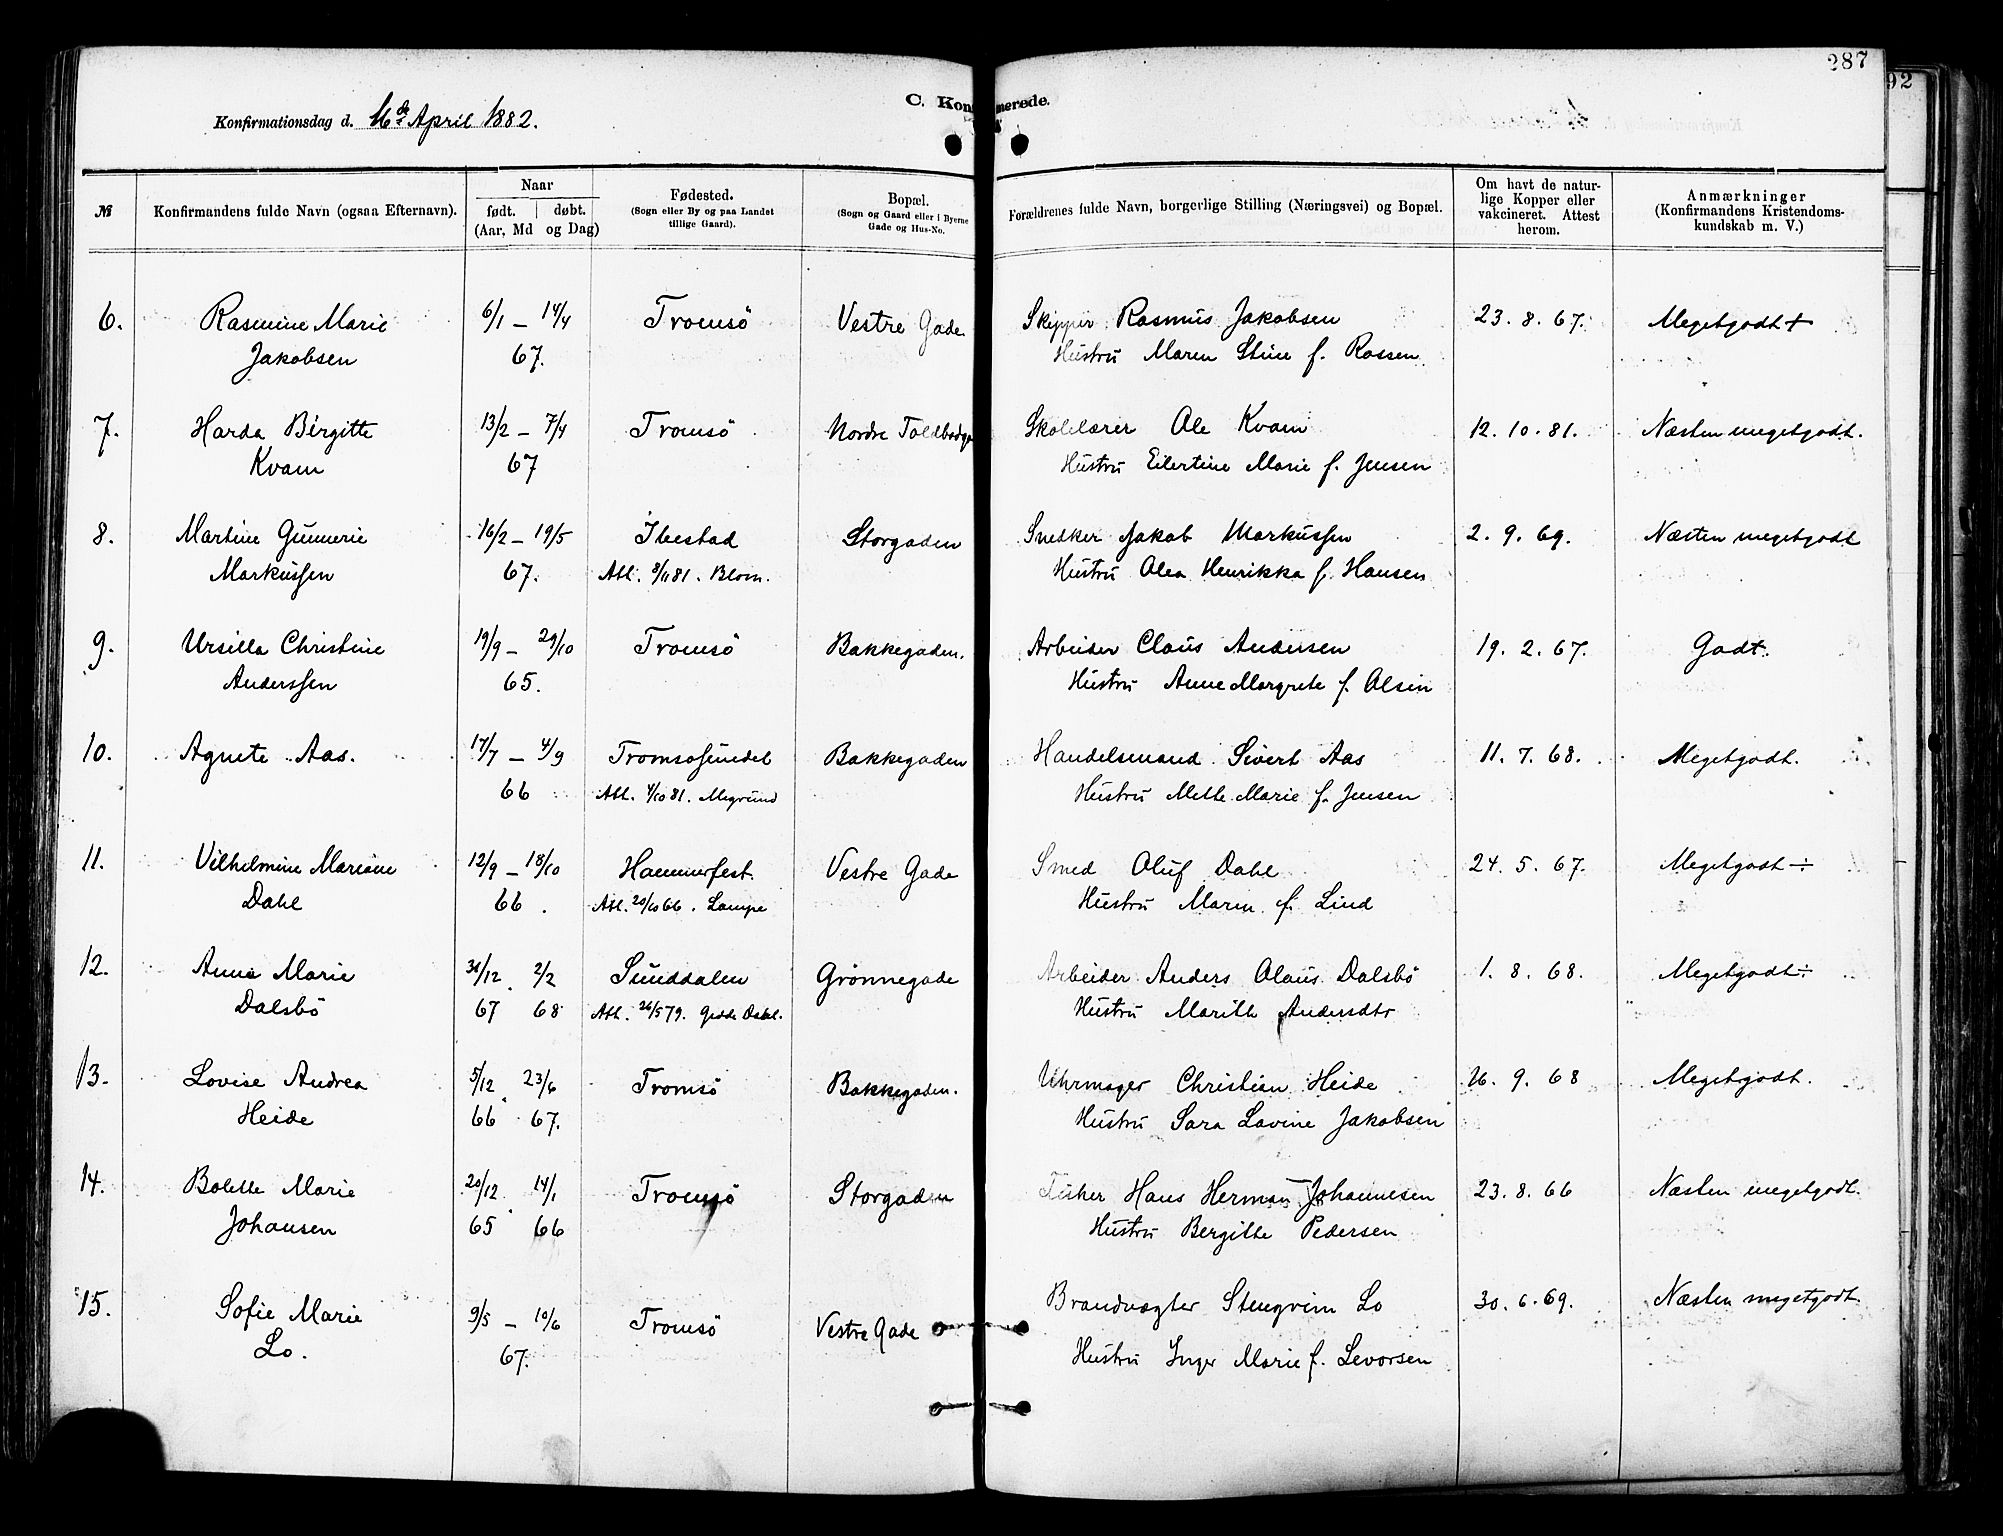 287
92
C. Konfirmerede.
Konfirmationsdag d. 16de April 1882.
№
Konfirmandens fulde Navn (ogsaa Efternavn).
Naar
født. | døbt.
(Aar, Md og Dag)
Fødested.
(Sogn eller By og paa Landet
tillige Gaard).
Bopæl.
(Sogn og Gaard eller i Byerne
Gade og Hus-No.
Forældrenes fulde Navn, borgerlige Stilling (Næringsvei) og Bopæl.
Om havt de natur-
lige Kopper eller
vakcineret. Attest
herom.
Anmærkninger
(Konfirmandens Kristendoms-
kundskab m. V.)
6. Rasmine Marie 6/1 – 14/4 Tromsö Vestre Gade Skipper Rasmus Jakobsen 23. 8. 67. Megetgodt +
Jakobsen 67. Hustru Maren Stine f. Rossen
7. Harda Birgitte 13/2 – 7/4 Tromsö Nordre Toldbodga Skolelærer Ole Kvam 12. 10. 81. Næsten megetgodt.
Kvam 67 Hustru Eilertine Marie f. Jensen
8. Martine Gunnerie 16/2 – 19/5 Ibestad Storgaden Snedker Jakob Markussen 2. 9. 69. Næsten megetgodt
Markussen 67. Att. 8/11 81. Blom. Hustru Olea Henrikka f. Hansen
9. Ursilla Christine 19/9 – 29/10 Tromsö Bakkegaden. Arbeider Claus Andersen 19. 2. 67. Godt.
Anderssen 65. Hustru Anne Margrete f. Olsen
10. Agnete Aas. 17/7 – 4/9 Tromsøsundet Bakkegaden Handelsmand Sivert Aas 11. 7. 68. Megetgodt.
66 Att. 4/10 81. Hustru Mette Marie f. Jensen
11. Vilhelmine Mariane 12/9 – 18/10 Hammerfest. Vestre Gade Smed Oluf Dahl 24. 5. 67. Megetgodt ÷
Dahl 66. Att. 20/10 66. Lampe Hustru Maren f. Lind
12. Anne Marie 31/12 2/2 Sunddalen Grönnegade Arbeider Anders Olaus Dalsbö 1. 8. 68. Megetgodt ÷
Dalsbö 67 68 Att. 26/5 79. Gedde Dahl. Hustru Marith Andersdtr
13. Lovise Andrea 5/12 23/6 Tromsö Bakkegaden. Uhrmager Christian Heide 16. 9. 68 Megetgodt.
Heide 66 67. Hustru Sara Lovine Jakobsen
14. Bolette Marie 20/12 14/1 Tromsö Storgaden Fisker Hans Herman Johannesen 23. 8. 66 Næsten megetgodt.
Johansen 65 66 Hustru Bergitte Pedersen
15. Sofie Marie 9/5 – 10/6 Tromsö Vestre Gade Brandvægter Stengrim Lo 30. 6. 69. Næsten megetgodt.
Lo. 67. Hustru Inger Marie f. Levorsen